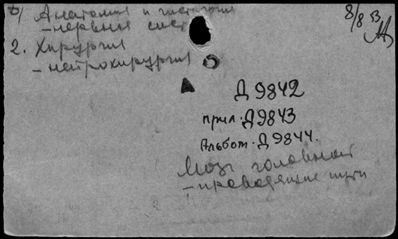 б/ Анатомия и гистология
- нервная сист
2. Хирургия
- нейрохирургия
8/8 53
Д 9842
прил. Д 9843
Альбом. Д 9844.
Мозг головной
- проводящие пути